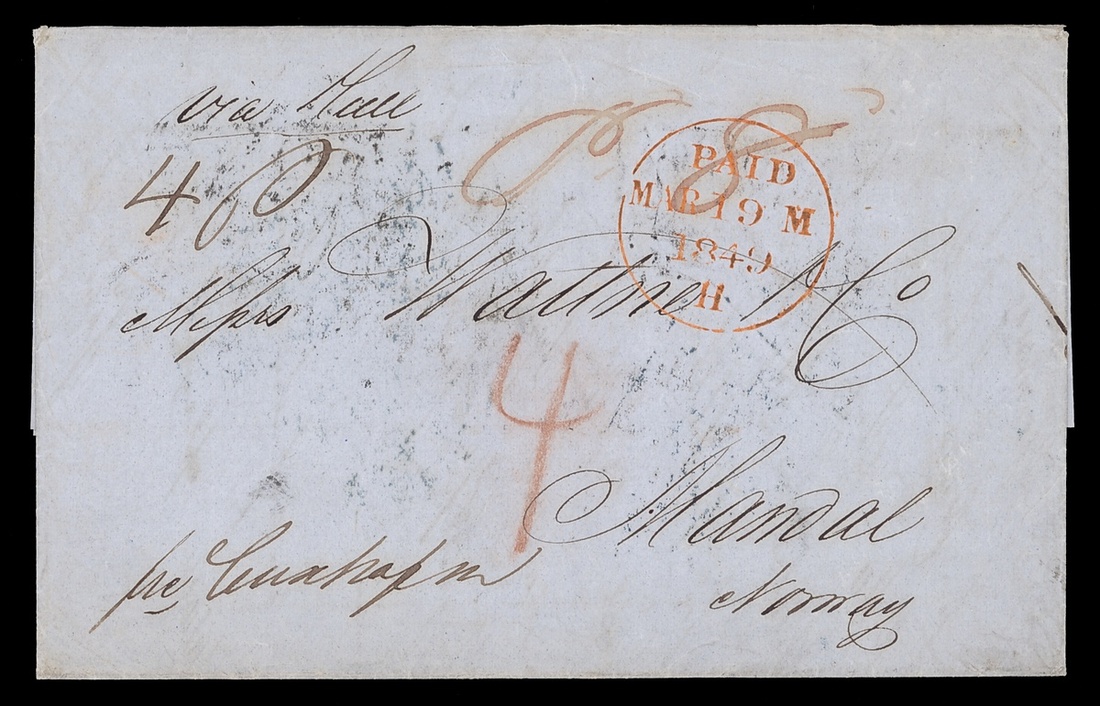 via Hull
P 8
4
PAID
MAR 19 M
1849
H
Messrs Wattne & Co
4
Mandal
Norway